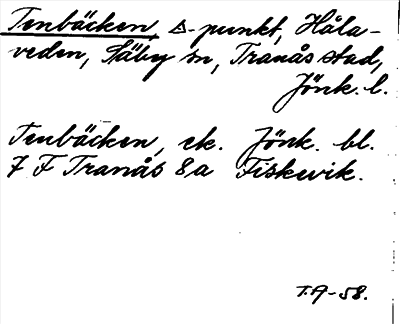 Tenbäcken, △-punkt, Håla-
veden, Säby sn, Tranås stad,
Jönk. l.
Tenbäcken, ek. Jönk. bl.
7 F Tranås 8a Fiskevik.
T.A-58.